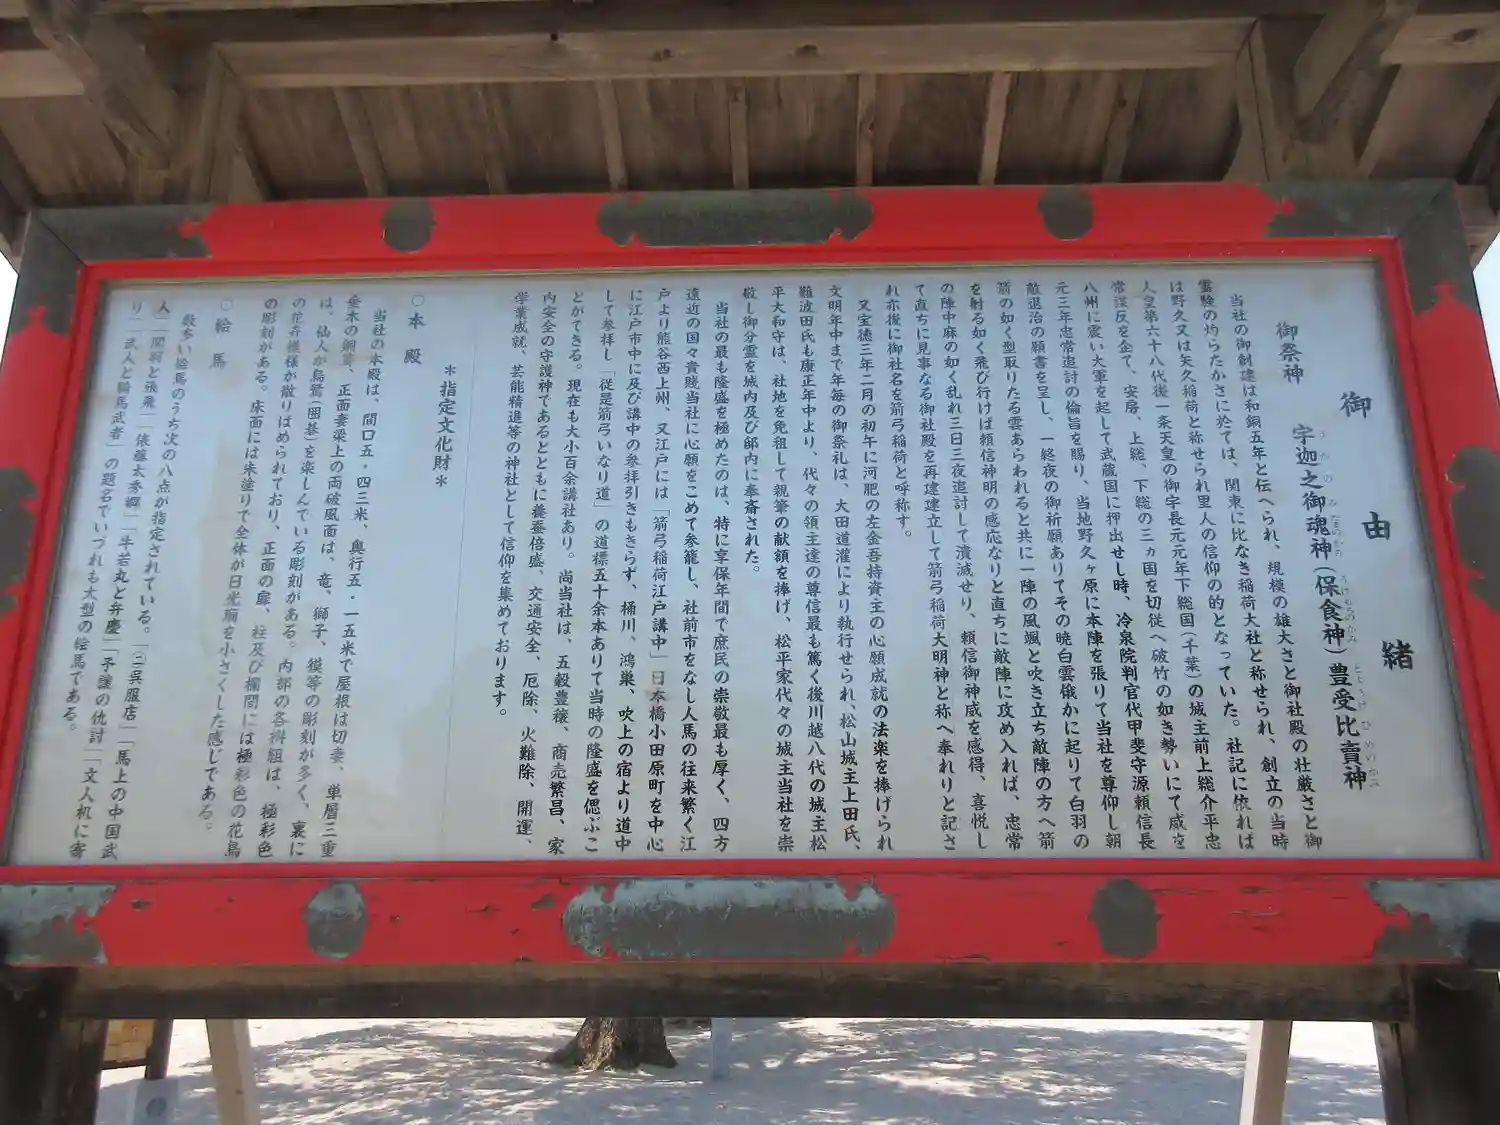 御由緒
御祭神 宇迦之御魂神（保食神）豊受比賣神
うかのみたまのかみ うけもちのかみ とようけひめのかみ
当社の御創建は和銅五年と伝へられ、規模の雄大さと御社殿の壮厳さと御
霊験の灼らたかさに於ては、関東に比なき稲荷大社と称せられ、創立の当時
は野久又は矢久稲荷と称せられ里人の信仰の的となっていた。社記に依れば
人皇第六十八代後一条天皇の御宇長元元年下総国（千葉）の城主前上総介平忠
常謀反を企て、安房、上総、下総の三ヵ国を切従へ破竹の如き勢いにて威を
八州に震い大軍を起して武蔵国に押出せし時、冷泉院判官代甲斐守源頼信長
元三年忠常追討の倫旨を賜り、当地野久ヶ原に本陣を張りて当社を尊仰し朝
敵退治の願書を呈し、一終夜の御祈願ありてその暁白雲俄かに起りて白羽の
箭の如く型取りたる雲あらわれると共に一陣の風颯と吹き立ち敵陣の方へ箭
を射る如く飛び行けば頼信神明の感応なりと直ちに敵陣に攻め入れば、忠常
の陣中麻の如く乱れ三日三夜追討して潰滅せり、頼信御神威を感得、喜悦し
て直ちに見事なる御社殿を再建建立して箭弓稲荷大明神と称へ奉れりと記さ
れ亦後に御社名を箭弓稲荷と呼称す。
又宝徳三年二月の初午に河肥の左金吾持資主の心願成就の法楽を捧げられ
文明年中まで年毎の御祭礼は、大田道灌により執行せられ、松山城主上田氏、
難波田氏も康正年中より、代々の領主達の尊信最も篤く後川越八代の城主松
平大和守は、社地を免租して親筆の献額を捧げ、松平家代々の城主当社を崇
敬し御分霊を城内及び邸内に奉斎された。
当社の最も隆盛を極めたのは、特に享保年間で庶民の崇敬最も厚く、四方
遠近の国々貴賎当社に心願をこめて参籠し、社前市をなし人馬の往来繁く江
戸より熊谷西上州、又江戸には「箭弓稲荷江戸講中」日本橋小田原町を中心
に江戸市中に及び講中の参拝引きもきらず、桶川、鴻巣、吹上の宿より道中
して参拝し「従是箭弓いなり道」の道標五十余本ありて当時の隆盛を偲ぶこ
とができる。現在も大小百余講社あり。尚当社は、五穀豊穣、商売繁昌、家
内安全の守護神であるとともに養蚕倍盛、交通安全、厄除、火難除、開運、
学業成就、芸能精進等の神社として信仰を集めております。
＊指定文化財＊
○本殿
当社の本殿は、間口五・四三米、奥行五・一五米で屋根は切妻、単層三重
垂木の銅葺、正面妻梁上の両破風面は、竜、獅子、獏等の彫刻が多く、裏に
は、仙人が烏鷺（囲碁）を楽しんでいる彫刻がある。内部の各枓組は、極彩色
の花卉模様が散りばめられており、正面の扉、柱及び欄間には極彩色の花鳥
の彫刻がある。床面には朱塗りで全体が日光廟を小さくした感じである。
○絵馬
数多い絵馬のうち次の八点が指定されている。「㊁呉服店」「馬上の中国武
人」「関羽と張飛」「俵藤太秀郷」「牛若丸と弁慶」「予譲の仇討」「文人机に寄
り」「武人と騎馬武者」の題名でいづれも大型の絵馬である。